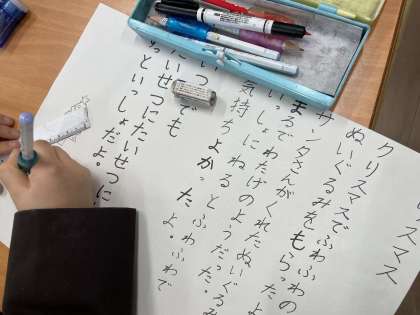 リスマス
クリスマスでふわふわの
ぬいぐるみをもらったよ
サンタさんがくれたぬいぐるみ
まるでわたげのようだった。
いっしょにねるとふわふわで
気持ちよかったよ。
いつ でも
たいせつにたいせつに
っといっしょだよ。